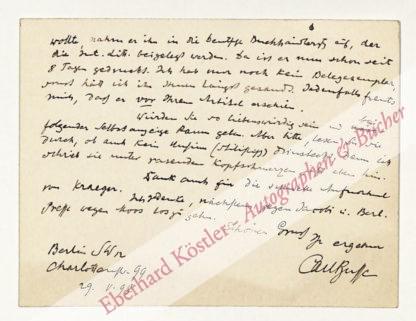 6
wollte, nahm er ihn in die deutsche Buchhändlerztg auf, der
die Int. Litt. beigelegt werden. Da ist er nun schon seit
8 Tagen gedruckt. Ich hab nur noch kein Belegexemplar,
sonst hätt ich es Ihnen längst gesandt. Jedenfalls freut's
mich, daß er vor Ihrem Artikel erschien.
Würden Sie so liebenswürdig sein und
folgender Selbstanzeige Raum geben. Aber bitte, lesen Sie sie
durch, ob auch kein Unsinn drinsteckt. Denn ich
schrieb sie unter rasenden Kopfschmerzen
Dank auch für die Aufnahme
von Kraeger. wegen Jacobi u. Berl.
Presse wegen Moos losgehn. Schönen Gruß
Ihr ergebner
Carl Busse
Berlin SW
Charlottenstr. 99
29. V.
Eberhard Köstler Autographen & Bücher